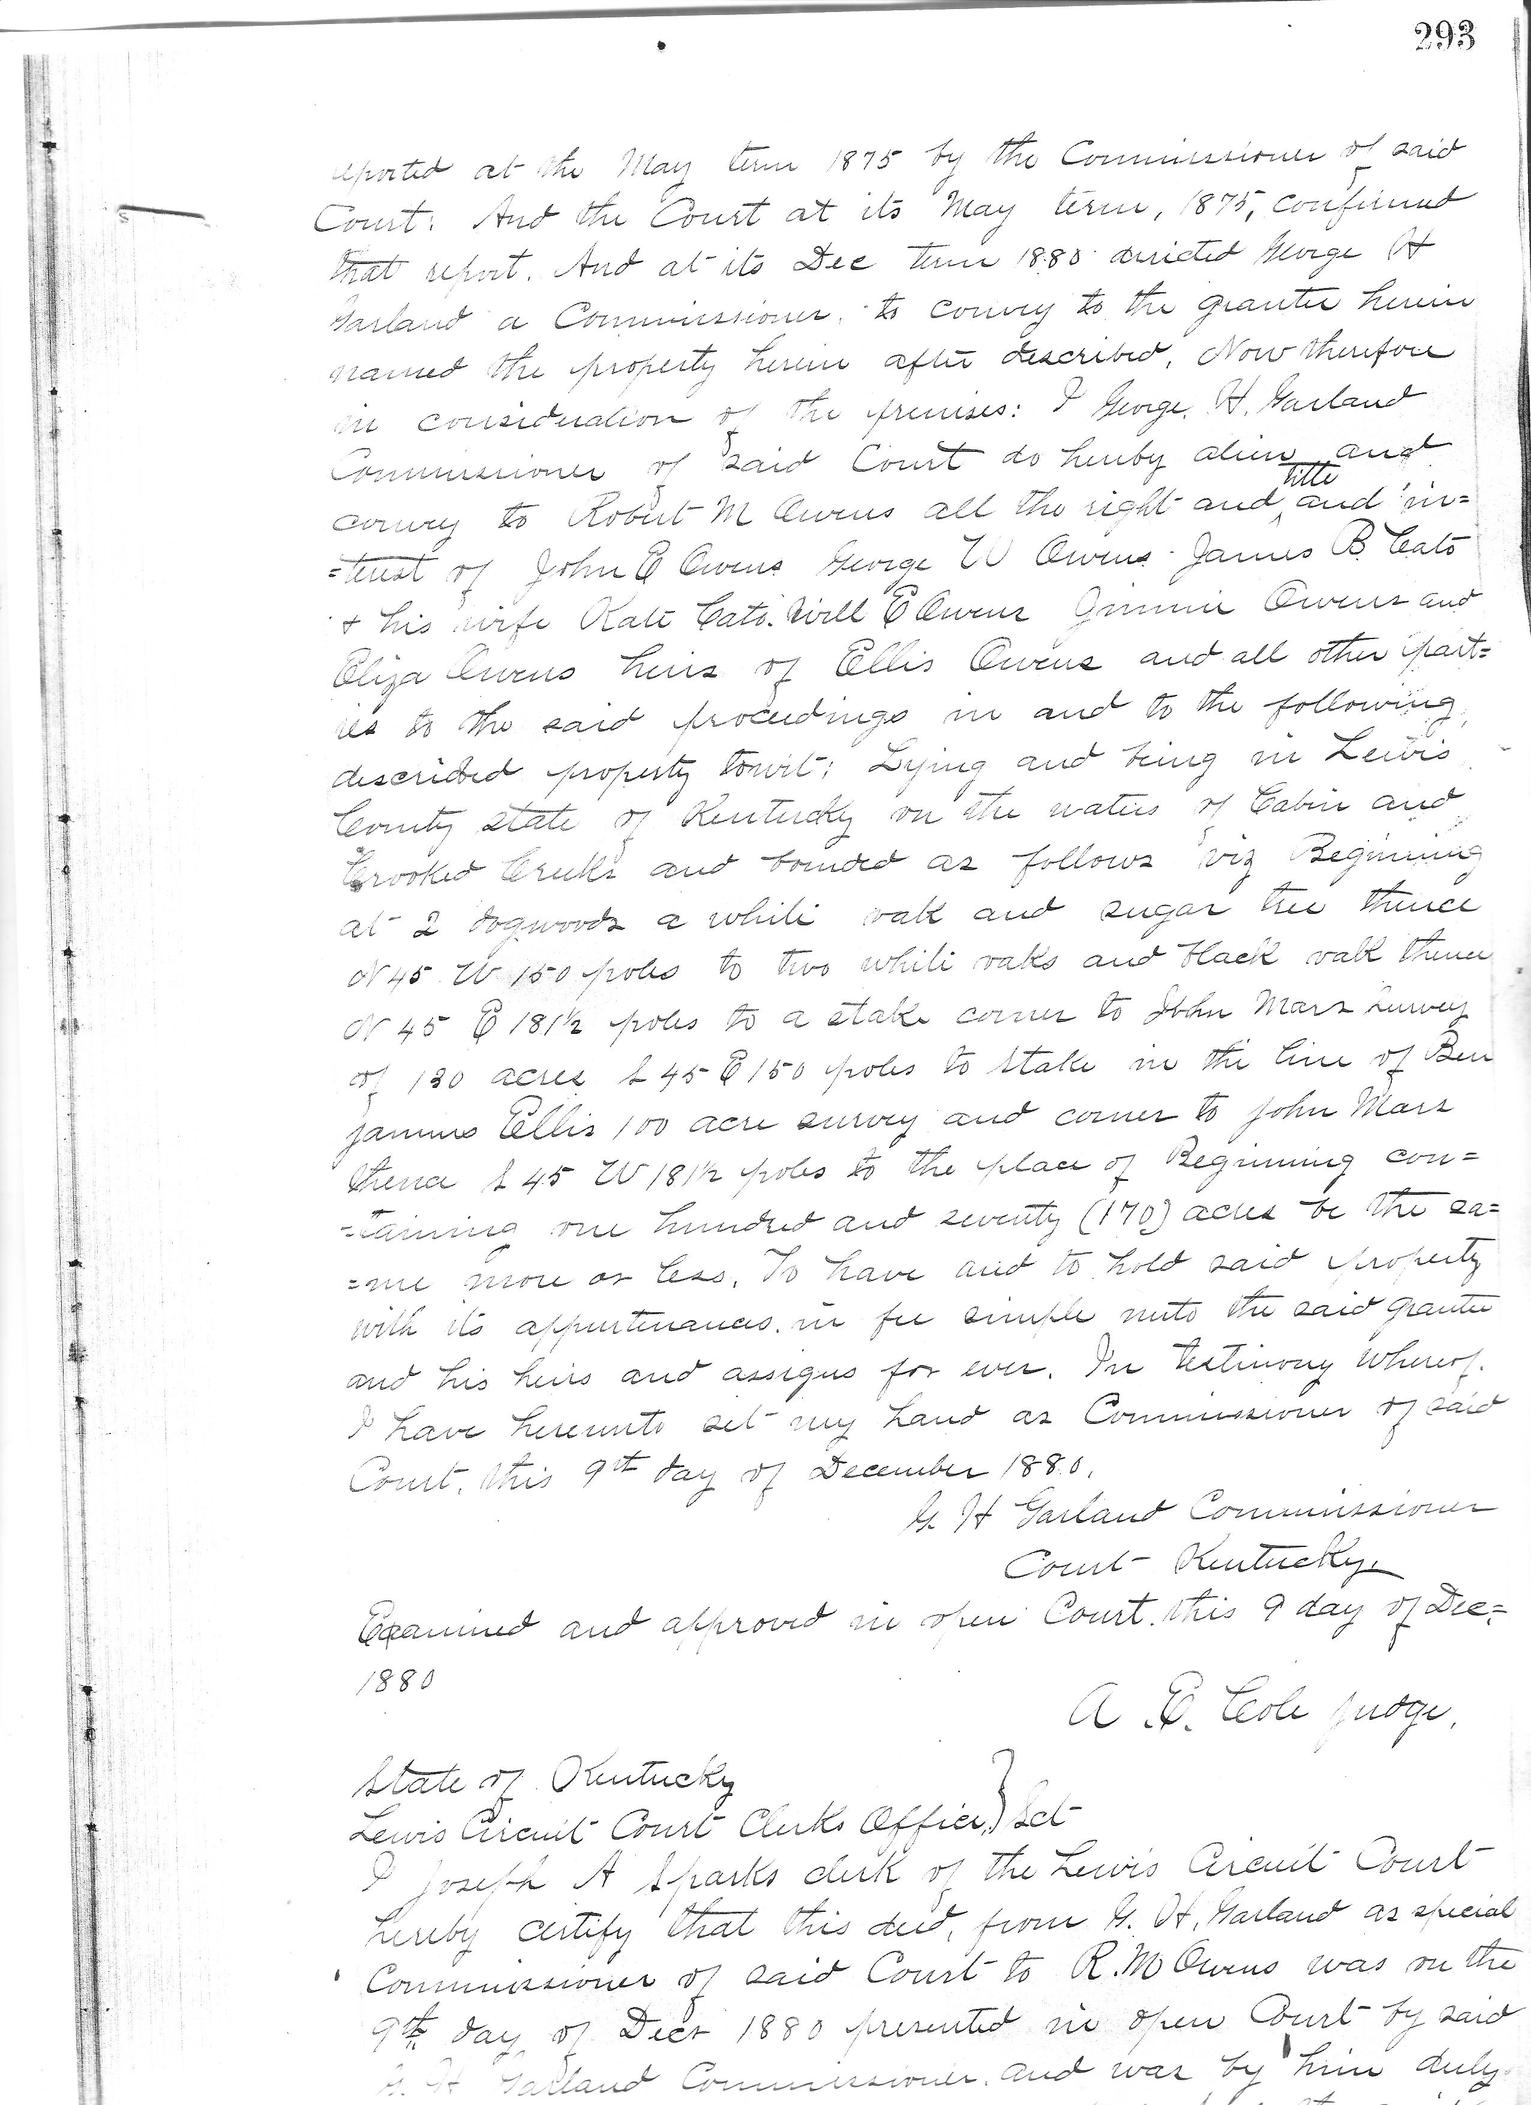 293
reported at the May term 1875 by the Commissioner of said
Court: And the Court at its May term, 1875, confirmed
that report. And at its Dec term 1880 directed George H
Garland a Commissioner. to convey to the grantee herein
named the property herein after described, Now therefore
in consideration of the premises: I George. H. Garland
Commissioner of said Court do hereby alien and
title
convey to Robert M Owens all the right and ^ and in=
=terest of John E Owens George W Owens James B Cato
+ his wife Kate Cato. Will E Owens Jimmie Owens and
Eliza Owens heirs of Ellis Owens and all other part=
ies to the said proceedings in and to the following
described property towit: Lying and being in Lewis
County state of Kentucky on the waters of Cabin and
Crooked Creeks and bounded as follows viz Beginning
at 2 dogwoods a white oak and sugar tree thence
N 45 W 150 poles to two white oaks and black oak thence
N 45 E 181½ poles to a stake corner to John Mars survey
of 130 acres S 45 E 150 poles to stake in the line of Ben
jamins Ellis 100 acre survey and corner to John Mars
thence S 45 W 181½ poles to the place of Beginning con=
=taining one hundred and seventy (170) acres be the sa=
=me more or less. To have and to hold said property
with its appurtenances. in fee simple unto the said grantee
and his heirs and assigns for ever. In testimony whereof.
I have hereunto set my hand as Commissioner of said
Court. this 9th day of December 1880.
G. H Garland Commissioner
Court Kentucky.
Examined and approved in open Court. this 9 day of Dec=
1880
A. E. Cole Judge.
State of Kentucky }
Lewis Circuit Court Clerks Office, } Sct
I Joseph A Sparks clerk of the Lewis Circuit Court
hereby certify that this deed, from G. H. Garland as special
Commissioner of said Court to R. M Owens was on the
9th day of Decr 1880 presented in open Court by said
G. H Garland Commissioner. and was by him duly